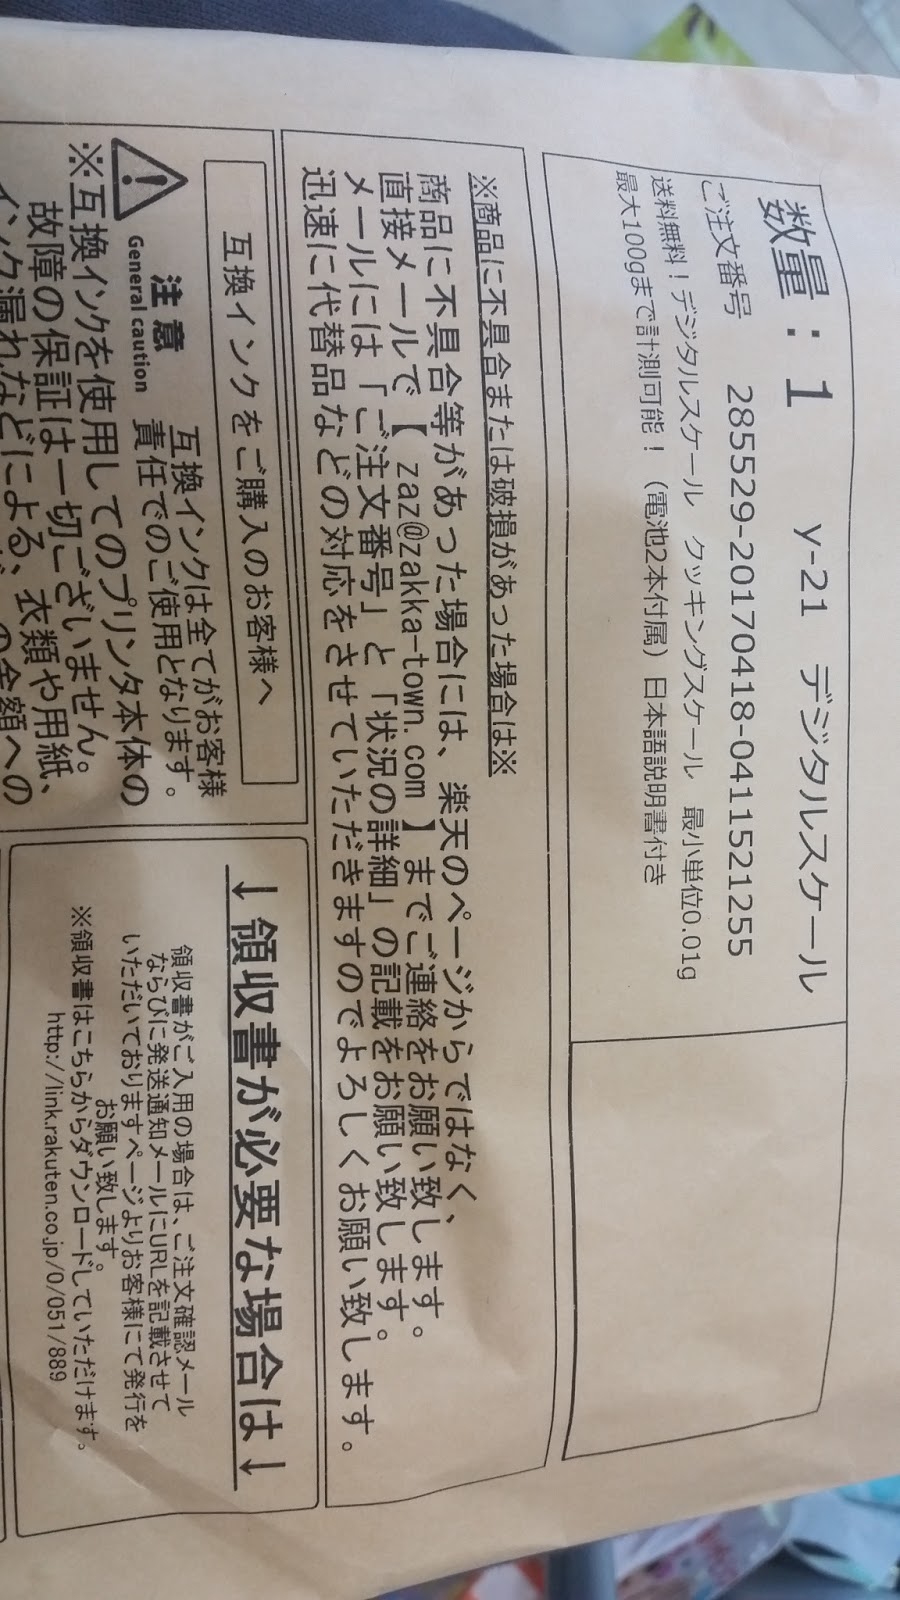 数量：1　y-21　デジタルスケール
ご注文番号　285529-20170418-0411521255
送料無料！デジタルスケール　クッキングスケール　最小単位0.01g
最大100gまで計測可能！（電池2本付属）日本語説明書付き
※商品に不具合または破損があった場合は※
商品に不具合等があった場合には、楽天のページからではなく、
直接メールで【 zaz@zakka-town.com 】までご連絡をお願い致します。
メールには「ご注文番号」と「状況の詳細」の記載をお願い致します。
迅速に代替品などの対応をさせていただきますのでよろしくお願い致します。
互換インクをご購入のお客様へ
注意
General caution
互換インクは全てがお客様
責任でのご使用となります。
※互換インクを使用してのプリンタ本体の
故障の保証は一切ございません。
インク漏れなどによる、衣類や用紙、
の全額への
↓領収書が必要な場合は↓
領収書がご入用の場合は、ご注文確認メール
ならびに発送通知メールにURLを記載させて
いただいておりますページよりお客様にて発行を
お願い致します。
※領収書はこちらからダウンロードしていただけます。
http://link.rakuten.co.jp/0/051/889